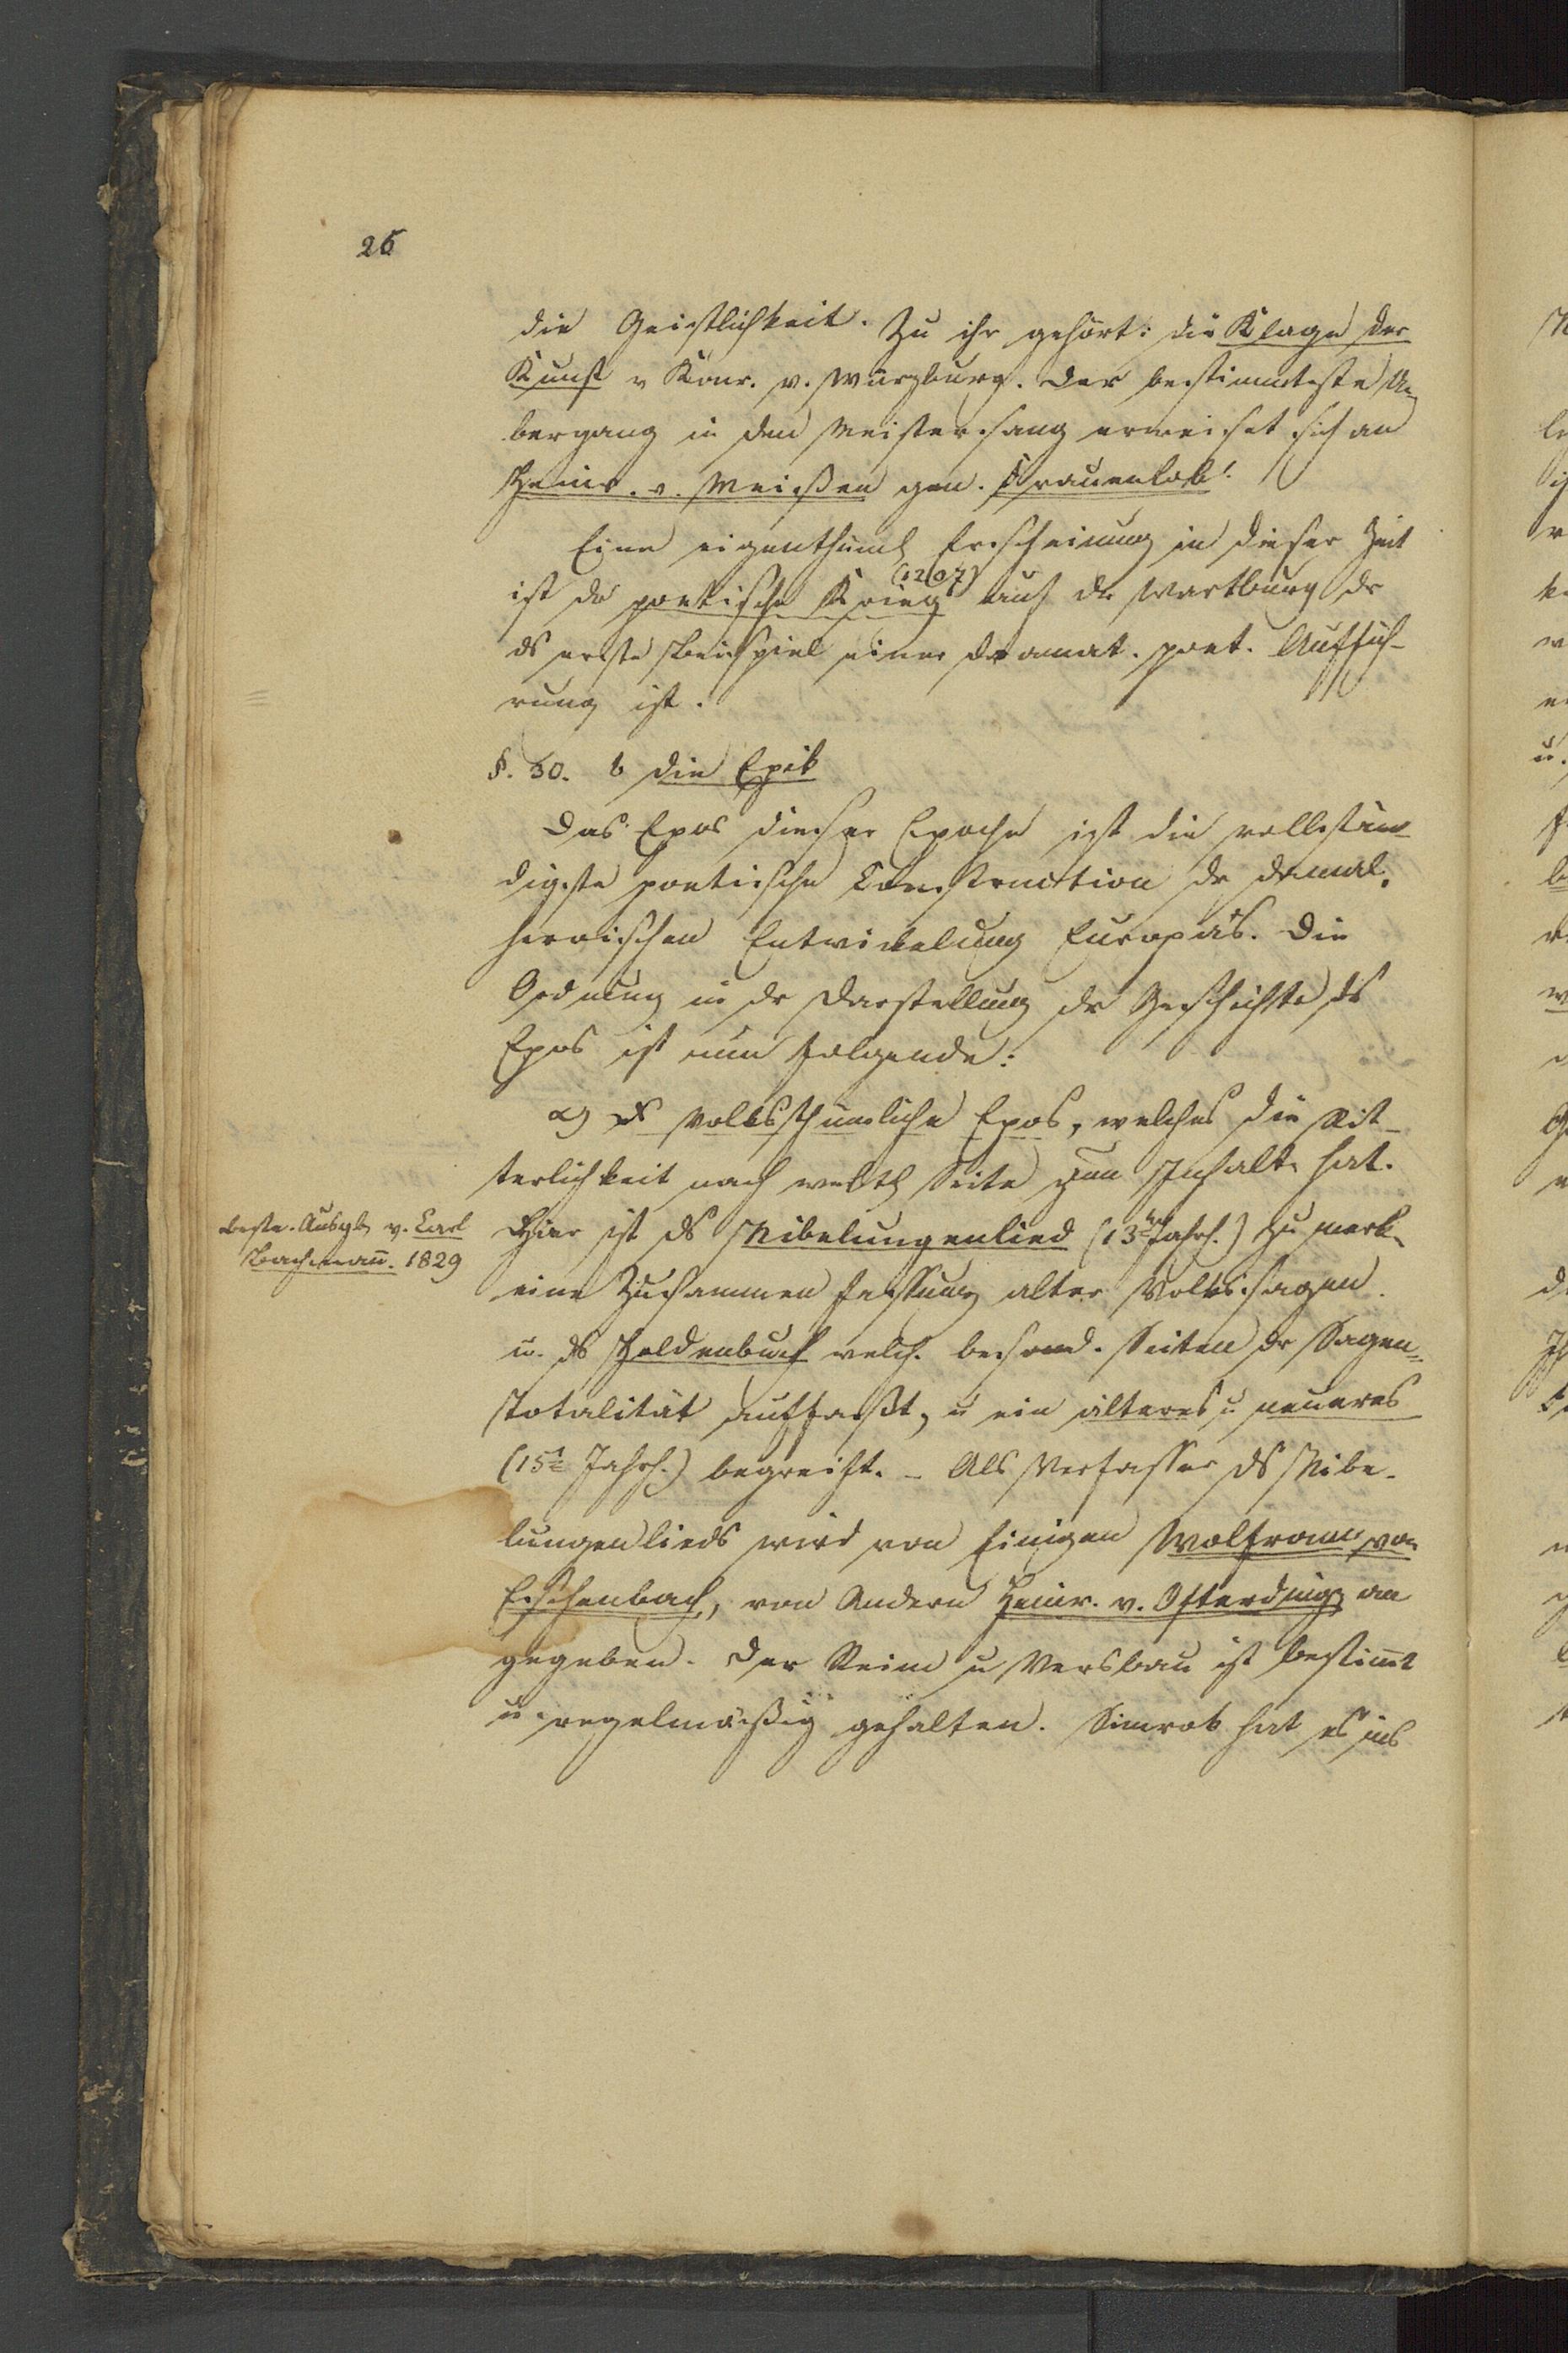 26
die Geistlichkeit. Zu ihr gehört: die Klage der
Kunst v Konr. v. Würzburg. Der bestimmteste Ue-
bergang in den Meistersang erweiset sich an
Heinr. v. Meißen gen. Frauenlob!
Eine eigenthüml Erscheinung in dieser Zeit
(1207)
ist der poetische Krieg auf der Wartburg der
ds erste Beispiel einer dramat. poet. Auffüh-
rung ist.
§. 30. b die Epik
Das Epos dieser Epoche ist die vollstän-
digste poetische Construction der damal.
heroischen Entwickelung Europa's. Die
Ordnung in dr Darstellung dr Geschichte ds
Epos ist nun folgende:
α) ds volksthümliche Epos, welches die Rit-
terlichkeit nach weltl Seite zum Inhalte hat.
beste Ausgb v. Carl
Lachmann. 1829
Hier ist ds Nibelungenlied (13te Jahrh.) zu merk.
eine Zusammenfassung alter Volkssagen
u. ds Heldenbuch welch. besond. Seiten dr Sagen-
totalität auffaßt, u ein älteres u neueres
(15te Jahrh.) begreift. - Als Verfasser ds Nibe-
lungenlieds wird von Einigen Wolfram von
Eschenbach, von Andern Heinr. v. Ofterding an
gegeben. Der Reim u Versbau ist bestimmt
u. regelmäßig gehalten. Simrok hat es ins